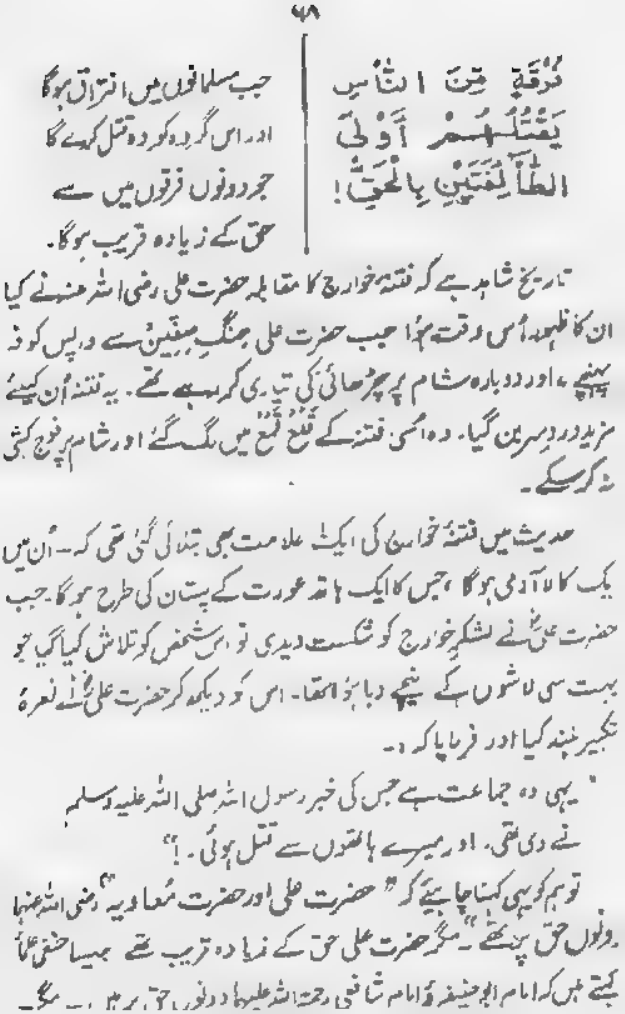 ۶۸
فُرْقَةٍ مِّنَ النَّاسِ
يَقْتُلُهُمْ أَوْلَى
الطَّائِفَتَيْنِ بِالْحَقِّ!
جب مسلمانوں میں افتراق ہوگا
اور اس گروہ کو وہ قتل کرے گا
جو دونوں فرقوں میں سے
حق کے زیادہ قریب ہوگا۔
تاریخ شاہد ہے کہ فتنۂ خوارج کا مقابلہ حضرت علی رضی اللہ عنہ نے کیا
ان کا ظہور اُس وقت ہوا جب حضرت علی جنگِ صفّین سے واپس کوفہ
پہنچے، اور دوبارہ شام پر چڑھائی کی تیاری کر رہے تھے۔ یہ فتنہ اُن کیلئے
مزید دردِ سر بن گیا۔ وہ اسی فتنہ کے قَلْع قَمْع میں لگ گئے اور شام پر فوج کشی
نہ کر سکے۔
حدیث میں فتنۂ خوارج کی ایک علامت بھی بتلائی گئی تھی کہ۔ اُن میں
یک کالا آدمی ہوگا، جس کا ایک ہاتھ عورت کے پستان کی طرح ہوگا۔ جب
حضرت علیؓ نے لشکرِ خوارج کو شکست دیدی تو اس شخص کو تلاش کیا گیا جو
بہت سی لاشوں کے نیچے دبا ہوا تھا۔ اس کو دیکھ کر حضرت علیؓ نے نعرۂ
تکبیر بلند کیا اور فرمایا کہ:۔
" یہی وہ جماعت ہے جس کی خبر رسول اللہ صلی اللہ علیہ وسلم
نے دی تھی۔ اور میرے ہاتھوں سے قتل ہوئی۔!"
تو ہم کو یہی کہنا چاہیئے کہ " حضرت علی اور حضرت مُعاویہ" رضی اللہ عنہما
دونوں حق پر تھے"۔ مگر حضرت علی حق کے زیادہ قریب تھے جیسا حنفی علمأ
کہتے ہیں کہ امام ابو حنیفہ و امام شافعی رحمۃ اللہ علیہما دونوں حق پر ہیں ۔۔ مگر۔